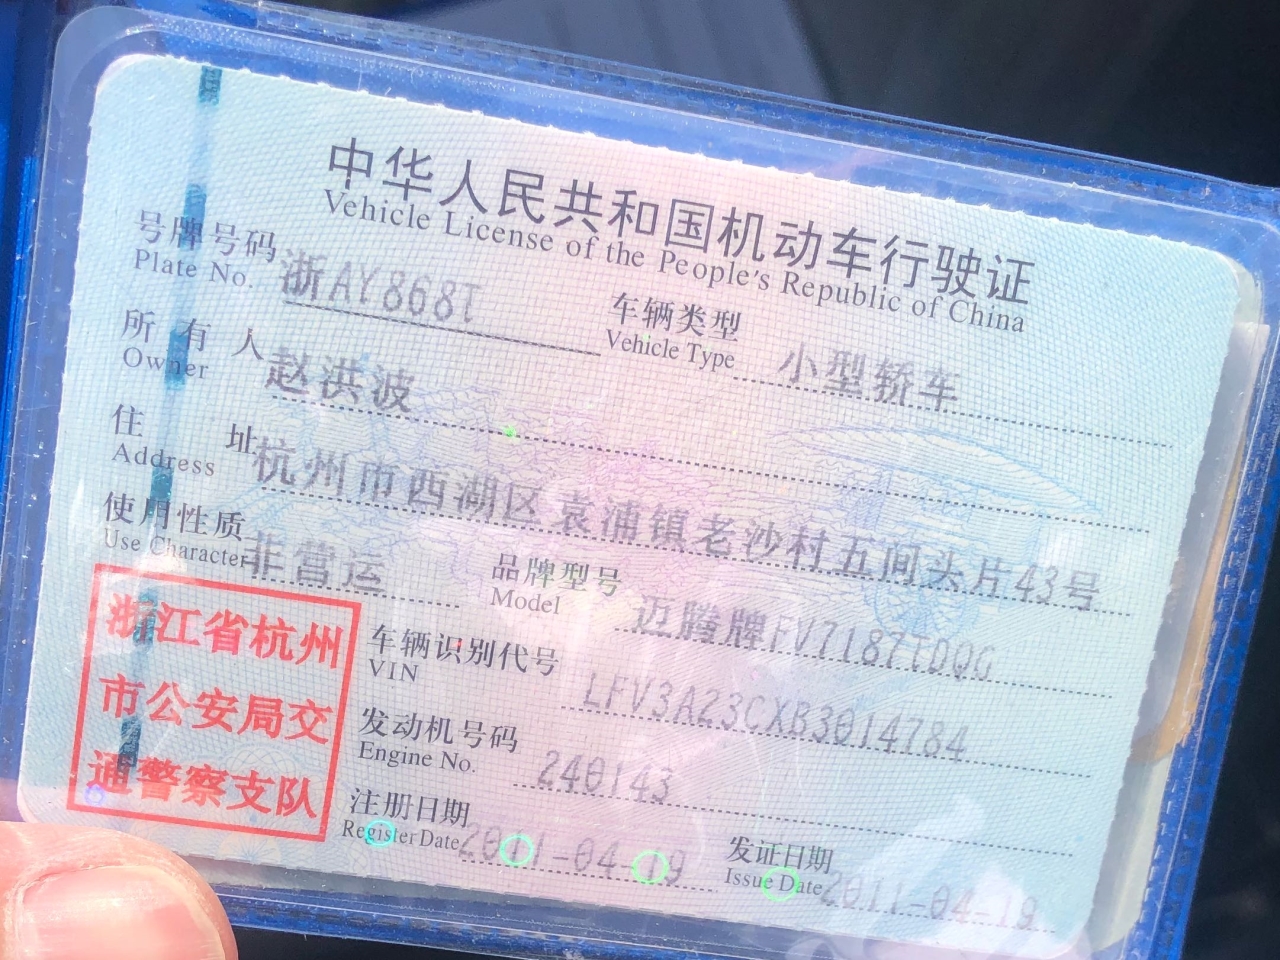 中华人民共和国机动车行驶证
Vehicle License of the People's Republic of China
号牌号码 浙AY868T 车辆类型 小型轿车
Plate No. Vehicle Type
所有人 赵洪波
Owner
住址 杭州市西湖区袁浦镇老沙村五间头片43号
Address
使用性质 非营运 品牌型号 迈腾牌FV7187TDQG
Use Character Model
浙江省杭州
市公安局交
通警察支队
车辆识别代号 LFV3A23CXB3014784
VIN
发动机号码 240143
Engine No.
注册日期 2011-04-19 发证日期 2011-04-19
Register Date Issue Date